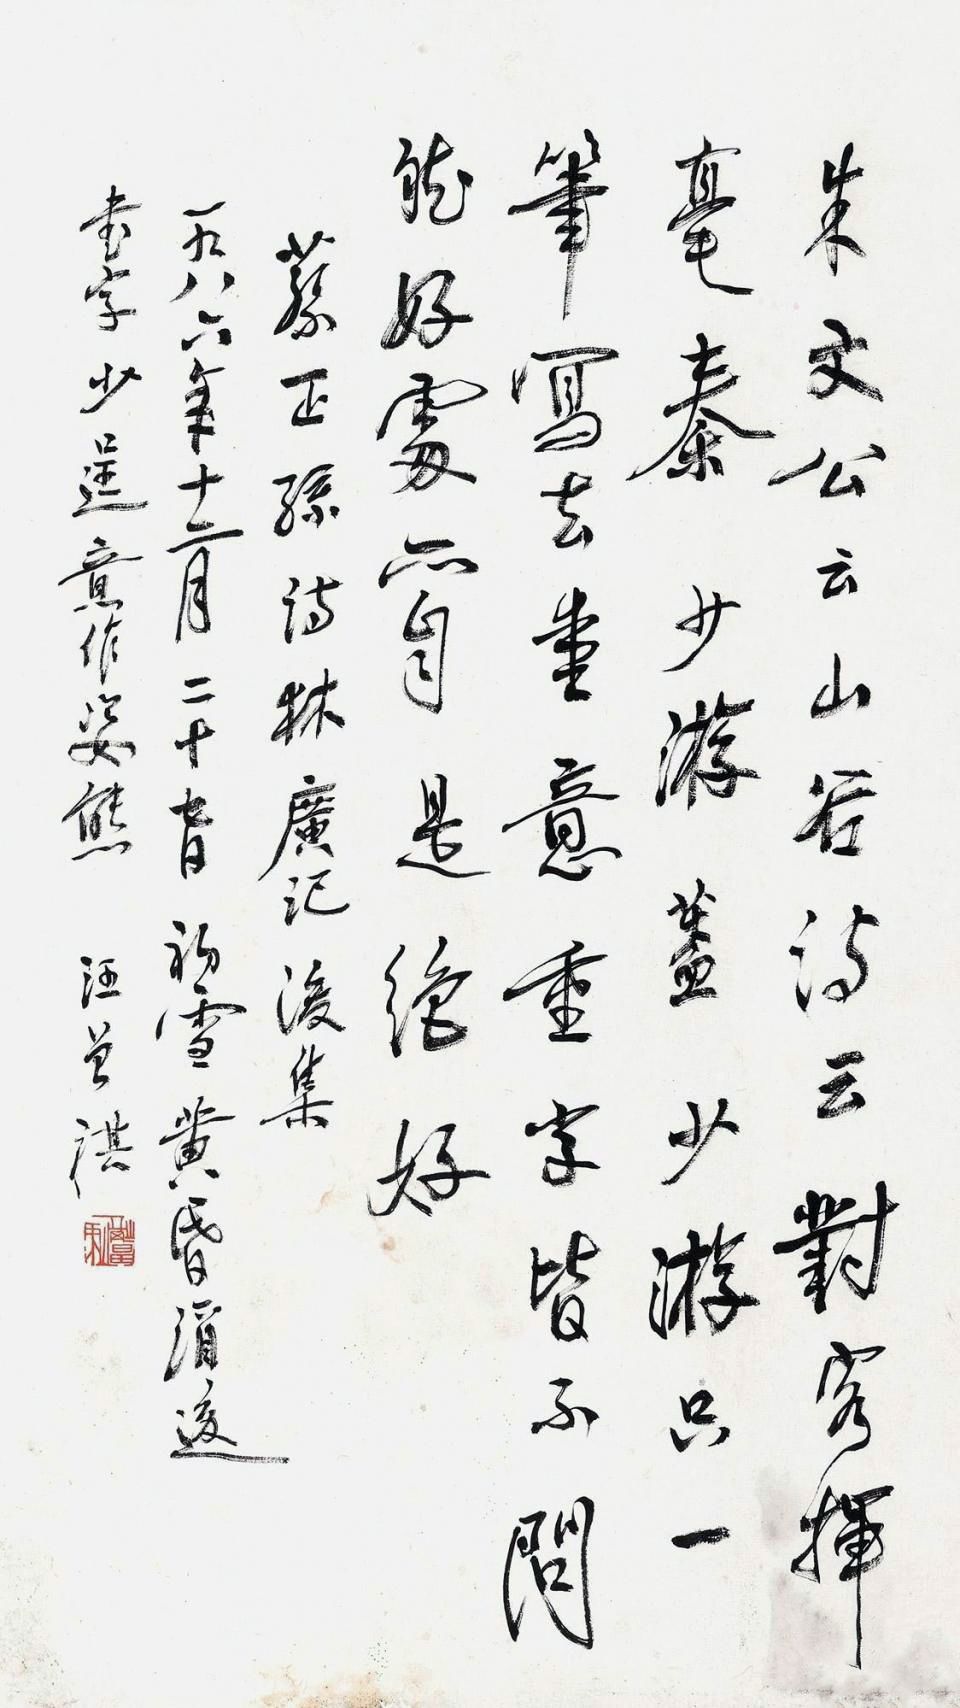 朱文公云山谷詩云對客揮
毫秦少游蓋少游只一
筆寫去重意重字皆不問
然好處亦自是絕好
蔡正孫詩林廣記後集
一九八六年十二月二十七日初雪黃昏酒後
書字少逞意作姿態 汪曾祺